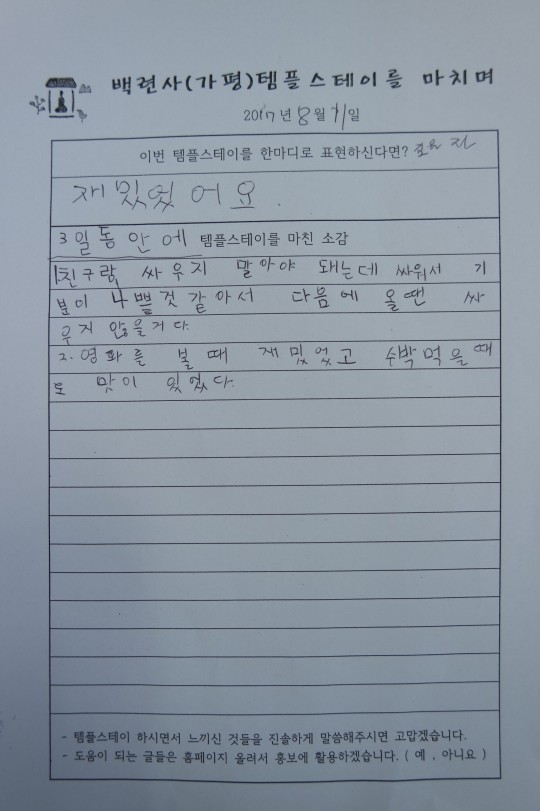 백련사(가평)템플스테이를 마치며
2017년 8월 11일
이번 템플스테이를 한마디로 표현하신다면?
재밌었어요.
3일동안에 템플스테이를 마친 소감
1친구랑 싸우지 말아야 돼는데 싸워서 기
분이 나쁠것 같아서 다음에 올땐 싸
우지 않을거다.
2. 영화를 볼 때 재밌었고 수박먹을때
도 맛이 있었다.
- 템플스테이 하시면서 느끼신 것들을 진솔하게 말씀해주시면 고맙겠습니다.
- 도움이 되는 글들은 홈페이지 올려서 홍보에 활용하겠습니다. ( 예 , 아니요 )